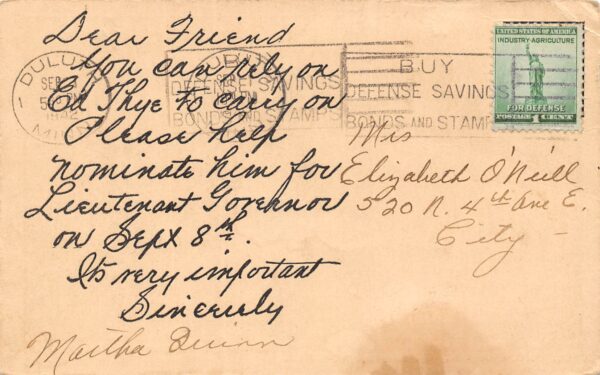 Dear Friend
You can rely on
Ed Thye to carry on
Please help
nominate him for
Lieutenant Governor
on Sept 8th.
It's very important
Sincerely
Martha Quinn
DULUTH
SEP
1942
MINN
DEFENSE SAVINGS
BONDS AND STAMPS
BUY
DEFENSE SAVINGS
BONDS AND STAMPS
UNITED STATES OF AMERICA
INDUSTRY-AGRICULTURE
FOR DEFENSE
POSTAGE 1 CENT
Mrs
Elizabeth O'Neill
520 N. 4th Ave E.
City -